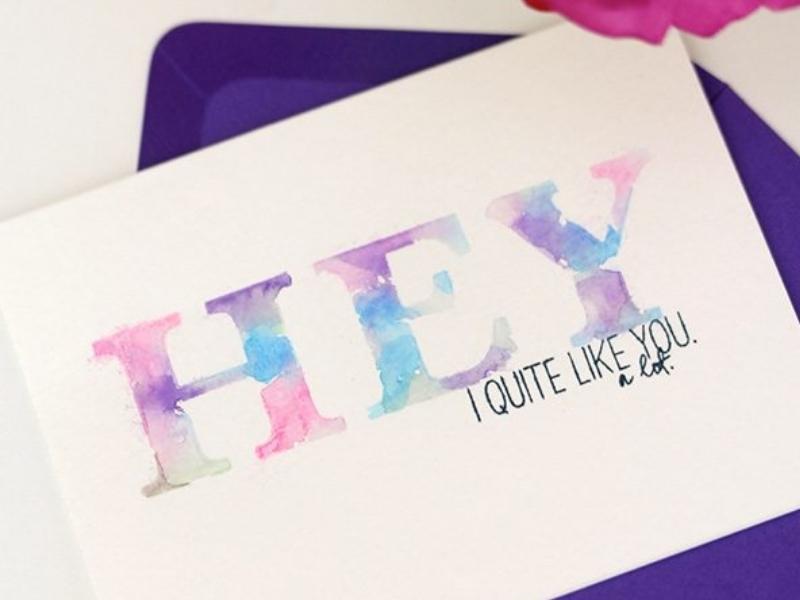 HEY
I QUITE LIKE YOU.
a lot.